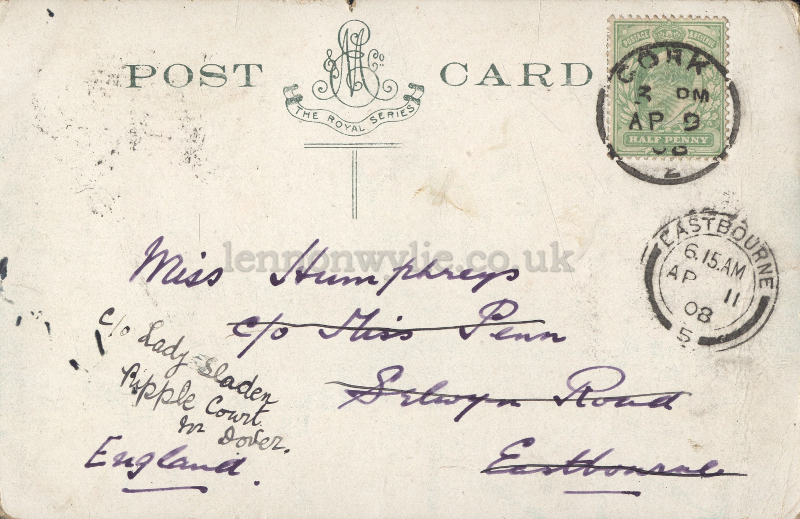 POST CARD
& Co
THE ROYAL SERIES
POSTAGE & REVENUE
HALF PENNY
CORK
3 PM
AP 9
08
2
EASTBOURNE
6.15 AM
AP 11
08
5
lennonwylie.co.uk
Miss Humphreys
c/o Miss Penn
Selwyn Road
Eastbourne
c/o Lady Sladen
Ripple Court
Nr Dover.
England.